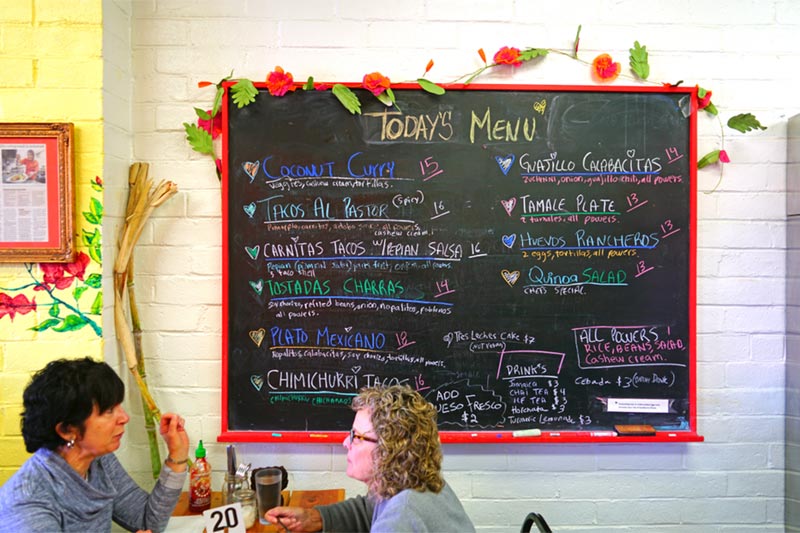 Today's Menu
Coconut Curry 15
Tacos Al Pastor (spicy) 16
cashew cream.
Carnitas Tacos w/Pepian Salsa 16
& taco shell
Tostadas Charras 14
refried beans, onion, nopalitos,
all powers.
Plato Mexicano
Nopalitos, calabacitas, soy chorizo, tortillas, all powers.
Chimichurri Tacos 16
Add
Queso Fresco
$2
Tres Leches Cake $7
Drink's
Jamaica $3
Chai Tea $4
Ice Tea $3
Horchata $3
Turmeric Lemonade $3
Guajillo Calabacitas 14
zucchini, onion, guajillo chili, all powers.
Tamale Plate 13
2 tamales, all powers.
Huevos Rancheros 13
2 eggs, tortillas, all powers.
Quinoa Salad 13
Chef's Special.
All Powers
Rice, Beans, Salad
Cashew cream.
Cebada $3
20